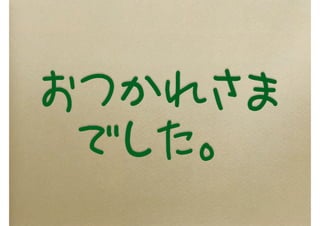 おつかれさま
でした。